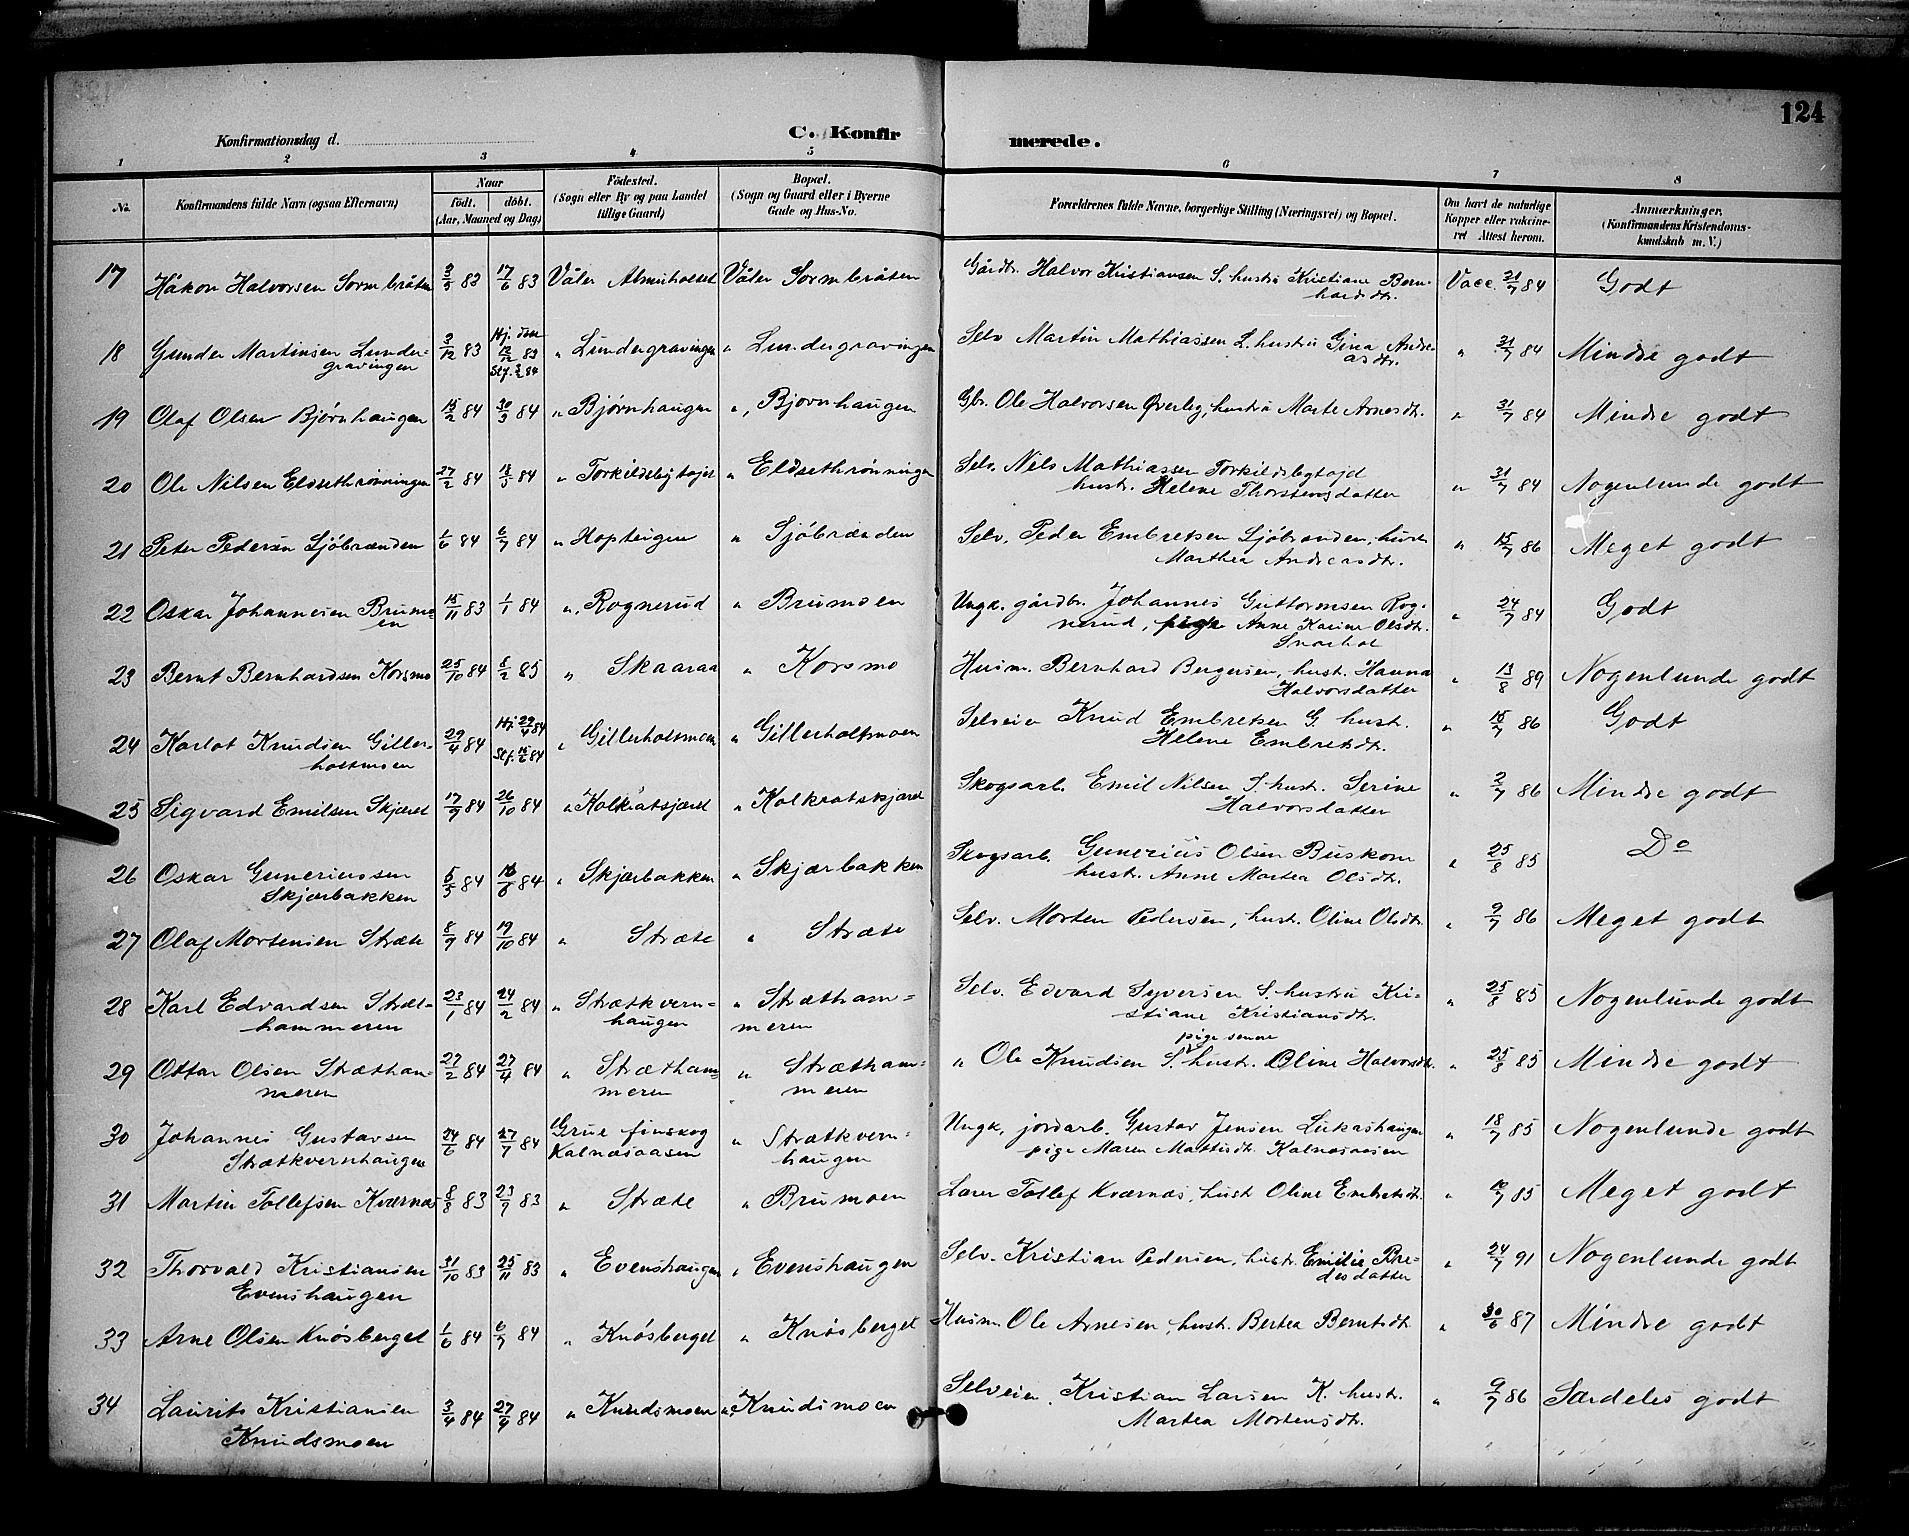 124
Konfirmationsdag d.
C. Konfirmerede.
1 2 3 4 5 6 7 8
No. Konfirmandens fulde Navn (ogsaa Efternavn) Naar født. døbt. (Aar, Maaned og Dag) Födested. (Sogn eller By og paa Landet tillige Gaard) Bopæl. (Sogn og Gaard eller i Byerne Gade og Hus-No. Forældrenes fulde Navne, borgerlige Stilling (Næringsvei) og Bopæl. Om havt de naturlige Kopper eller vakcineret Attest herom. Anmærkninger. (Konfirmandens Kristendomskundskab m. V.)
17 Håkon Halvorsen Sormbråten 83 17/6 83 Våler Våler Sormbråten Gårdbr. Halvor Kristiansen S. hustru Kristiane Bern-
hardsdtr. Vacc. 31/7 84 Godt
18 Gunder Martinsen Lunder-
gravingen 3/12 83 Hj. den 12/12 83 Stf. 84 " Lundergravingen " Lundergravingen Selv Martin Mathiassen L. hustru Gina Andre-
asdtr. " 31/7 84 Mindre godt
19 Olaf Olsen Bjørnhaugen 15/2 84 30/3 84 " Bjørnhaugen " Bjørnhaugen Gbr. Ole Halvorsen Øverby, hustru Marte Arnesdtr. " 31/7 84 Mindre godt
20 Ole Nilsen Eldsethrönningen 27/2 84 18/5 84 " " Eldsethrönningen Selv. Nils Mathiassen
hustr. Helene Thorstensdatter " 31/7 84 Nogenlunde godt
21 Peter Pedersen Sjöbrænden 1/6 84 6/7 84 " " Sjöbrænden Selv. Peder Embretsen Sjöbrænden, hustr.
Marthea Andreasdtr. " 15/7 86 Meget godt
22 Oskar Johannesen Brumo-
en 15/11 83 1/1 84 " Rognerud " Brumoen Ungk. gårdbr. Johannes Guttormsen Rog-
nerud, pige Anne Karine Olsdtr.
" 24/7 84 Godt
23 Bernt Bernhardsen Korsmo 25/10 84 8/2 85 " Skaaraa " Korsmo Husm. Bernhard Bergersen, hust. Hanna
Halvorsdatter " 13/8 89 Nogenlunde godt
24 Karlot Knudsen Giller-
holtmoen 29/4 84 Hj. 29/4 84 Stf. 15/6 84 " Gillerholtmoen " Gillerholtmoen Selveier Knud Embretsen G. hust.
Helene Embretsdtr. " 15/7 86 Godt
25 Sigvard Emilsen Skjæret 17/9 84 26/10 84 " Kolkråtsjæret " Kolkratskjæret Skogsarb. Emil Nilsen S. hust. Serine
Halvorsdatter " 2/7 86 Mindre godt
26 Oskar Guneriussen
Skjærbakken 5/5 84 84 " Skjærbakken " Skjærbakken Skogsarb. Gunerius Olsen Buskom
hustr. Anne Martea Olsdtr. " 25/8 85 Do
27 Olaf Mortensen Stræte 8/9 84 19/10 84 " Stræte " Stræte Selv. Morten Pedersen, hust. Oline Olsdtr " 9/7 86 Meget godt
28 Karl Edvardsen Stræt-
hammeren 23/1 84 24/2 84 " Strætkvern-
haugen " Strætham-
meren Selv. Edvard Syversen S. hustru Kri-
stiane Kristiansdtr. " 25/8 85 Nogenlunde godt
29 Ottar Olsen Strætham-
meren 27/2 84 27/4 84 " Stræthammeren " Stræthammeren pige senere
" Ole Knudsen S. hustr. Oline Halvorsdtr. " 25/8 85 Mindre godt
30 Johannes Gustavsen
Strætkvernhaugen 24/6 84 27/7 84 Grue finskog
Kalnæsaasen " Strætkvern-
haugen Ungk. jordarb. Gustav Jensen Lukashaugen
pige Maren Mattisdtr. Kalnæsaasen " 18/7 85 Nogenlunde godt
31 Martin Tollefsen Kværnæs 8/8 83 23/9 83 " Stræte " Brumoen Lærer Tollef Kværnæs, hust Oline Embretsdtr. " 85 Meget godt
32 Thorvald Kristiansen
Evenshaugen 31/10 83 25/11 83 " Evenshaugen " Evenshaugen Selv. Kristian Pedersen, hustr. Emilie Pre-
desdatter " 24/7 91 Nogenlunde godt
33 Arne Olsen Knösberget 1/6 84 6/7 84 " Knösberget " Knösberget Husm Ole Arnesen, hust. Bertea Berntsdtr. " 30/6 87 Mindre godt
34 Laurits Kristiansen
Knudsmoen 3/4 84 27/4 84 " Knudsmoen " Knudsmoen Selveier. Kristian Larsen K. hust.
Martea Mortensdtr. " 9/7 86 Særdeles godt